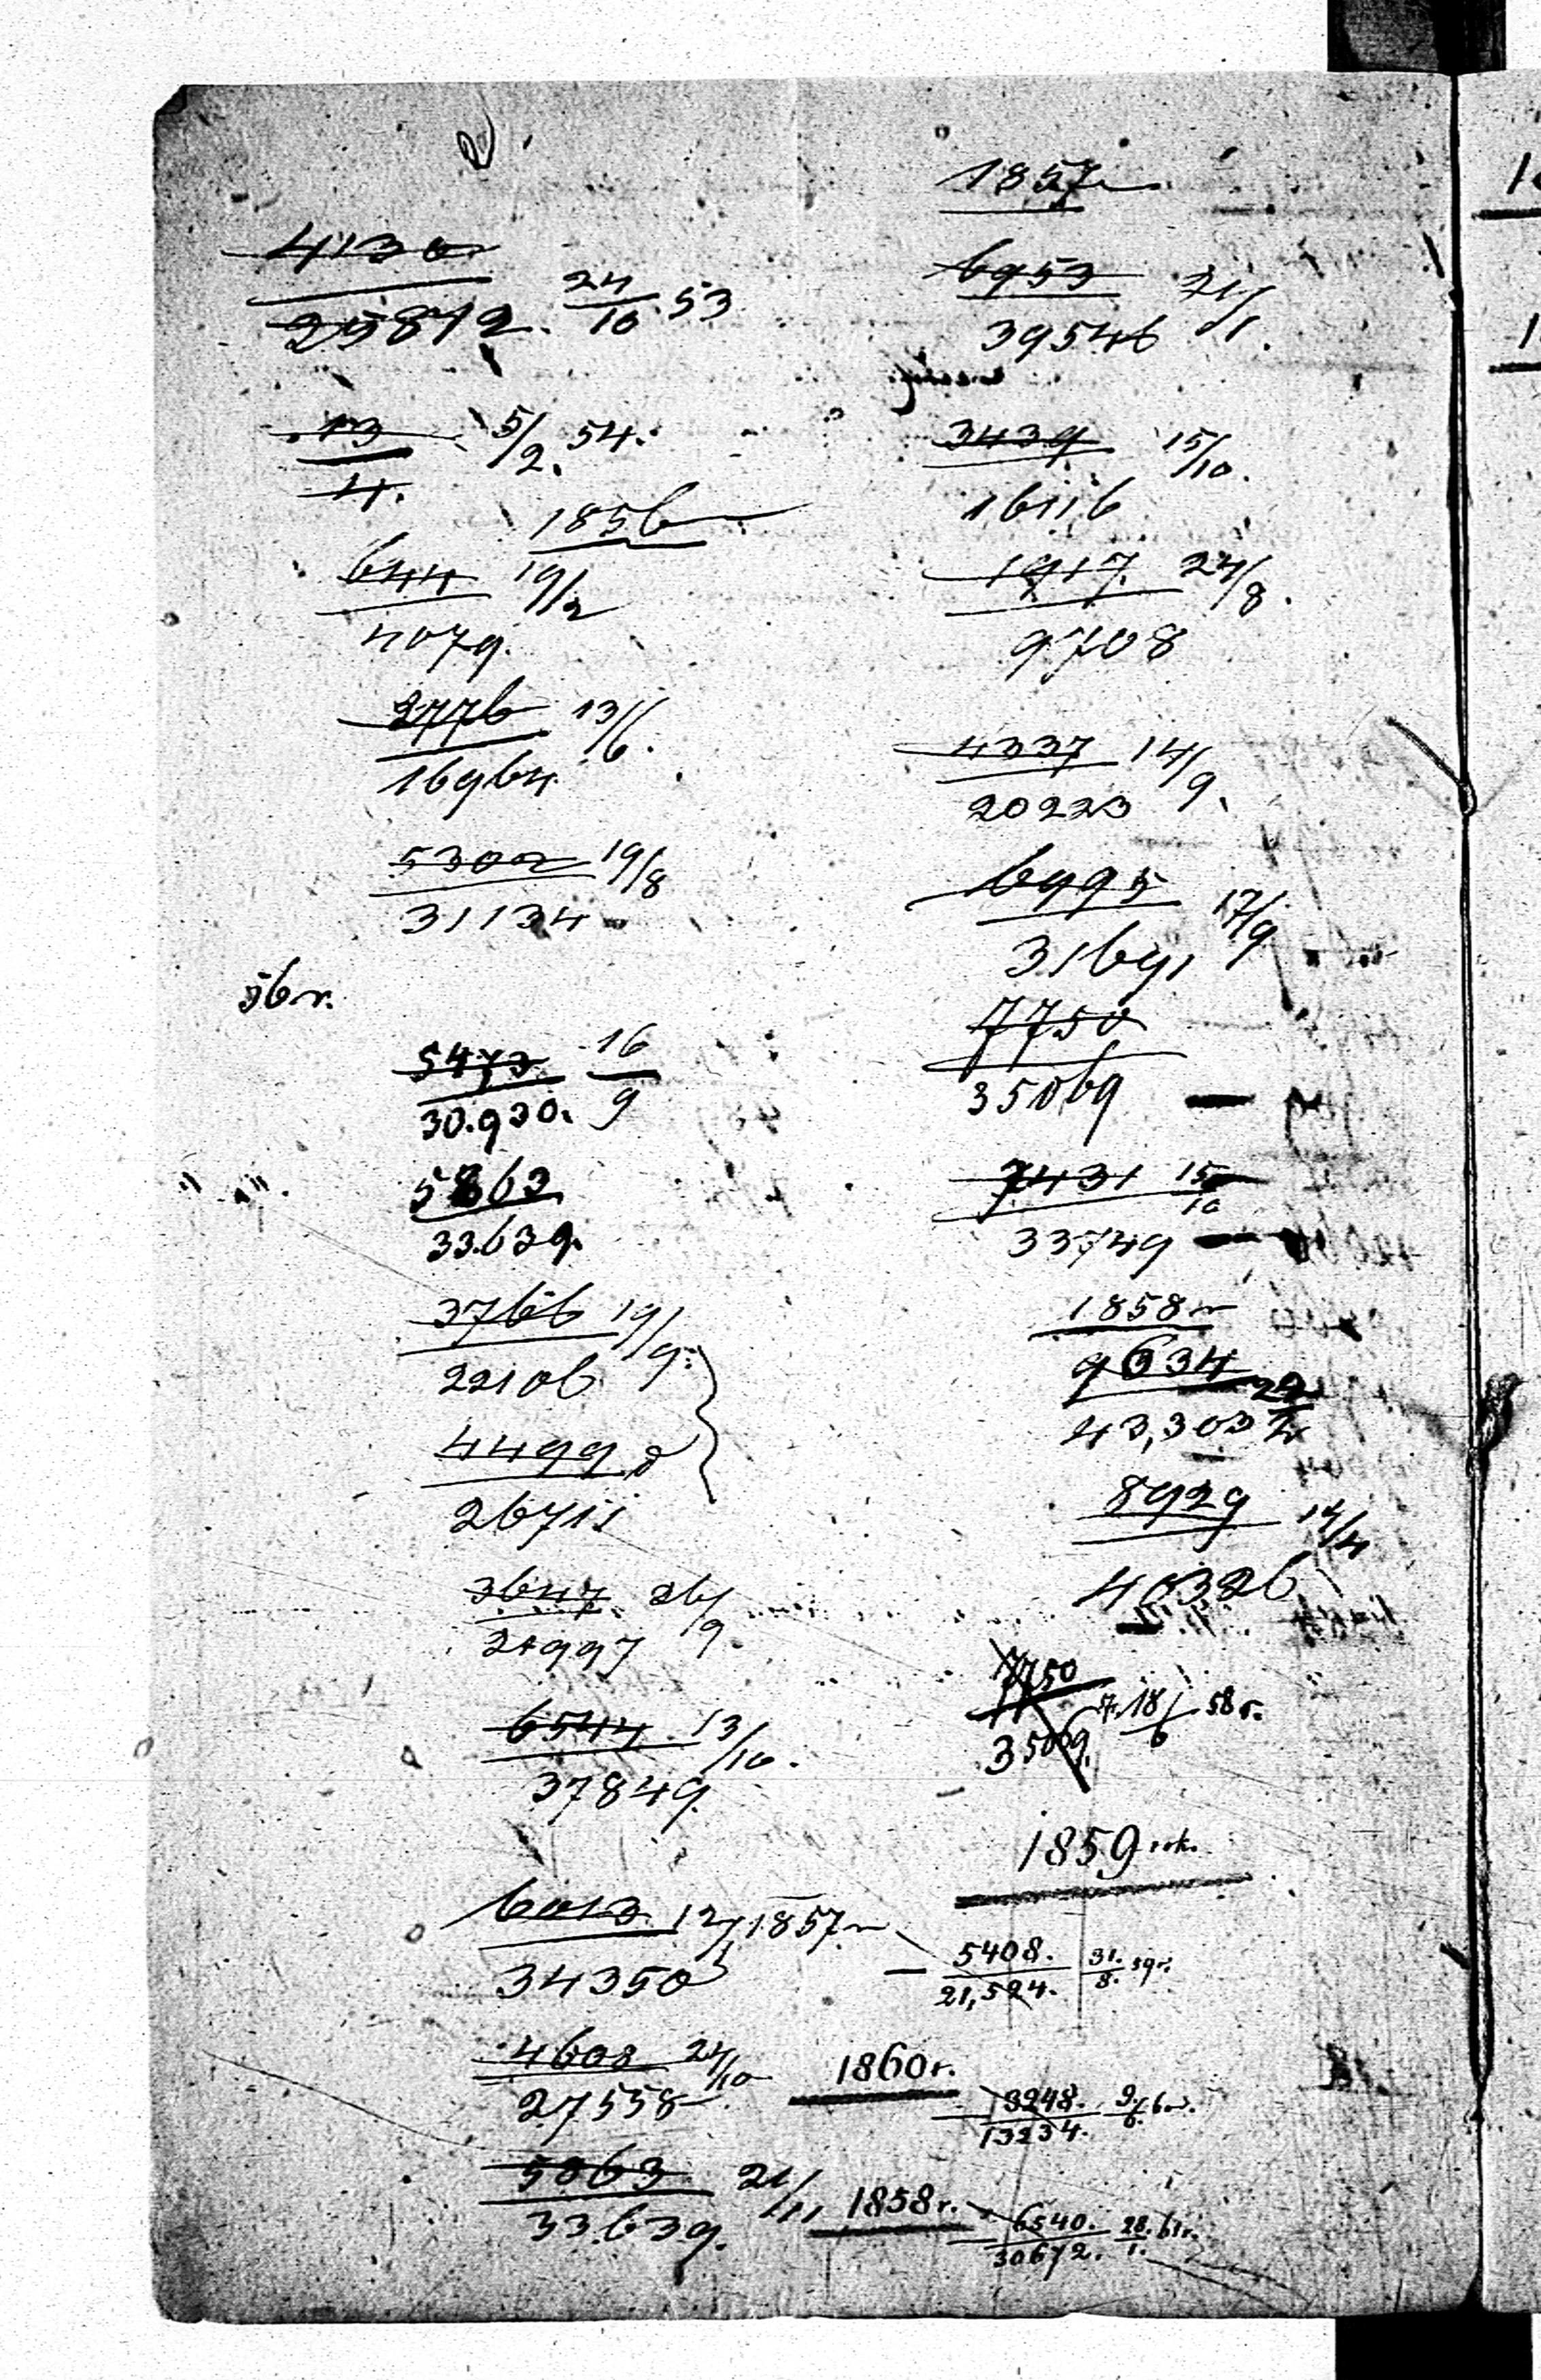 4130
25872. 24/10 53
13 5/2. 54.
4.
1856
644 19/2
4079.
2776 13/6.
16964
5302 19/8
31134
56 r.
5473 16/9
30.930.
5863
33.639.
3766 19/9
22106
4499
26711
3647 26/9
21997
6544 13/10.
37849.
6013 12/1 1857
34350
4608 24/10
27558
5863 21/11
33639.
1857
6953 21/1.
39546
3439 15/10.
16116
1917. 24/8.
9708
4337 14/9.
20223
6995 17/9
31691
7750
35069
7431 15/10
33749
1858
9634 22/1
43,303
8929 14/4
40326
7750
35069. 18/6 58 r.
1859 rok.
5408. 31./8. 59 r.
21,524.
1860 r.
3248. 9/6
13234.
1858 r.
6540. 28./1. 61 r.
30672.